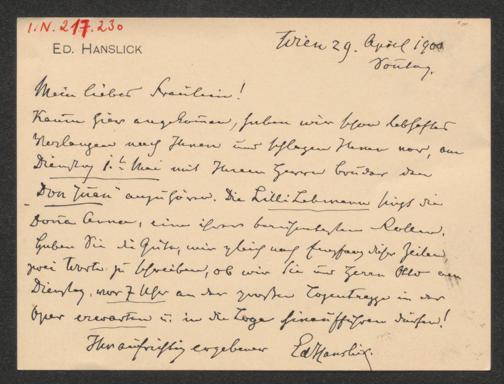 I.N. 217.230
ED. HANSLICK
Wien 29. April 1900
Sonntag.
Mein liebes Fräulein!
Kaum hier angekommen, haben wir schon lebhaftes
Verlangen nach Ihnen und schlagen Ihnen vor, am
Dienstag 1. Mai mit Ihrem Herrn Bruder den
„Don Juan" anzuhören. Die Lilli Lehmann singt die
Donna Anna, eine ihrer berühmtesten Rollen.
Haben Sie die Güte, mir gleich nach Empfang dieser Zeilen
zwei Worte zu schreiben, ob wir Sie und Herrn Otto am
Dienstag, vor 7 Uhr an der großen Logentreppe in der
Oper erwarten u. in die Loge hinaufführen dürfen!
Ihr aufrichtig ergebener Ed Hanslick.